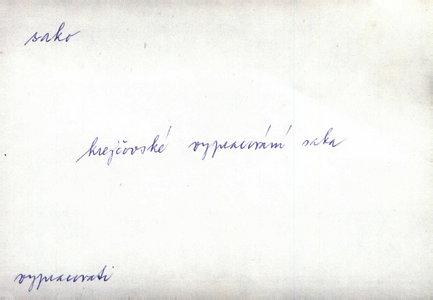 sako
krejčovské vypracování saka
vypracovati